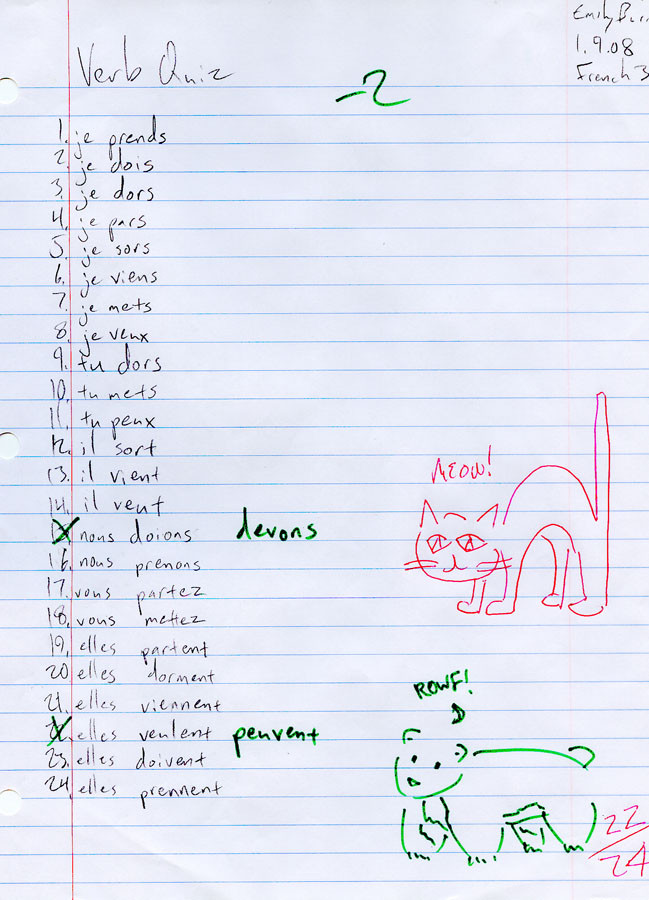 Emily
1.9.08
French 3
Verb Quiz
-2
1. je prends
2. je dois
3. je dors
4. je pars
5. je sors
6. je viens
7. je mets
8. je veux
9. tu dors
10. tu mets
11. tu peux
12. il sort
13. il vient
14. il veut
15. nous doions devons
16. nous prenons
17. vous partez
18. vous mettez
19. elles partent
20 elles dorment
21. elles viennent
22. elles veulent peuvent
23. elles doivent
24. elles prennent
MEOW!
ROWF!
22
24